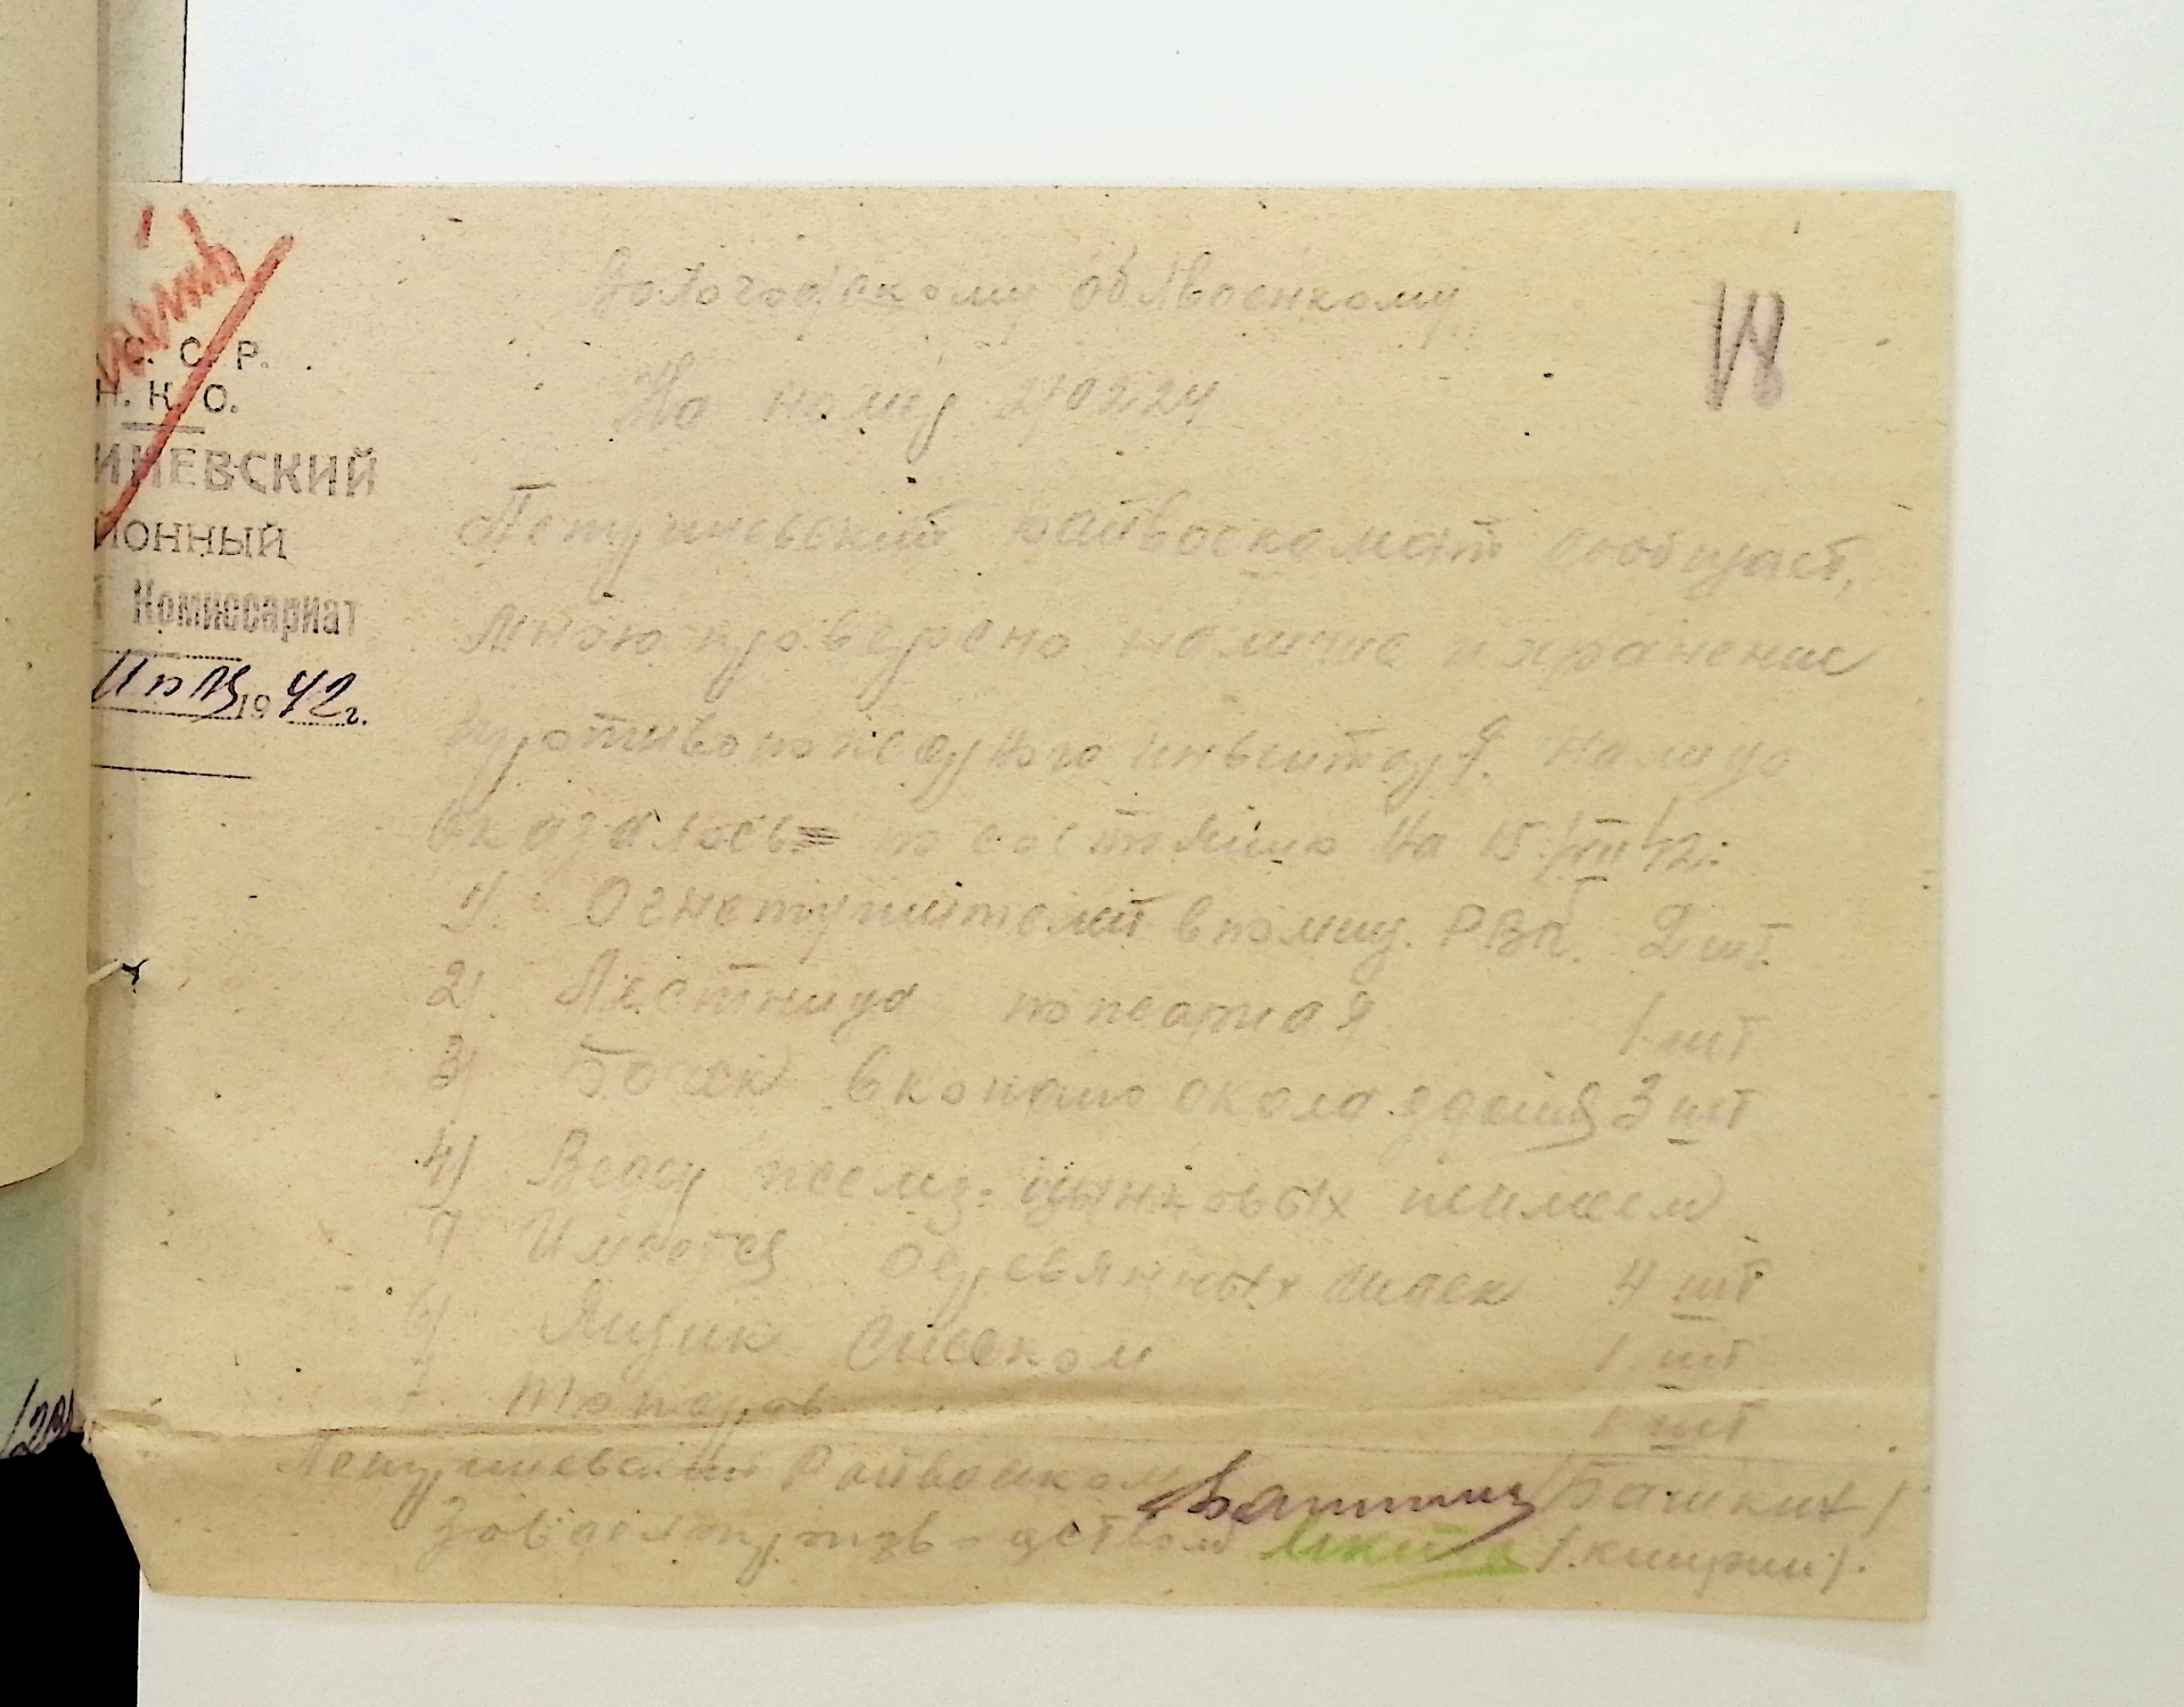 С. С. Р.
Н. К. О.
ИНЕВСКИЙ
ИОННЫЙ
Т Комиссариат
1942 г.
Вологодскому облвоенкому
На номер 2/0224
Петриневский райвоскомат сообщает,
мною проверено наличие и хранение
противопожедного инвентаря. Налицо
оказалось по состоянию на 15/VII 42:
1) Огнетушителей в помищ. РВК. 2 шт.
2) Лестница пожарная 1 шт
3) Бочек вкопано около здания 3 шт
4) Ведер желез. цынковых не имеем
Имеется деревянных 4 шт
6) Ящик спеском 1 шт
7 топоров 1 шт
Петриневский Райвоенком /Башкин/
Зав делопроизв-дством